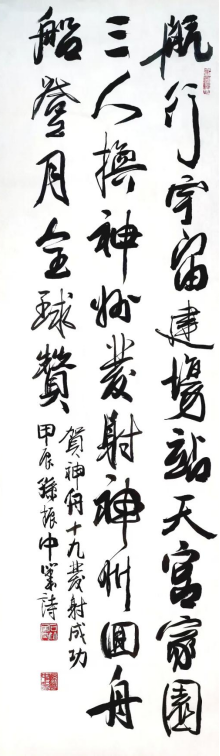 航行宇宙建場站天宮家園
三人換神州發射神州回舟
船登月全球贊
賀神舟十九發射成功
甲辰孫振中詩